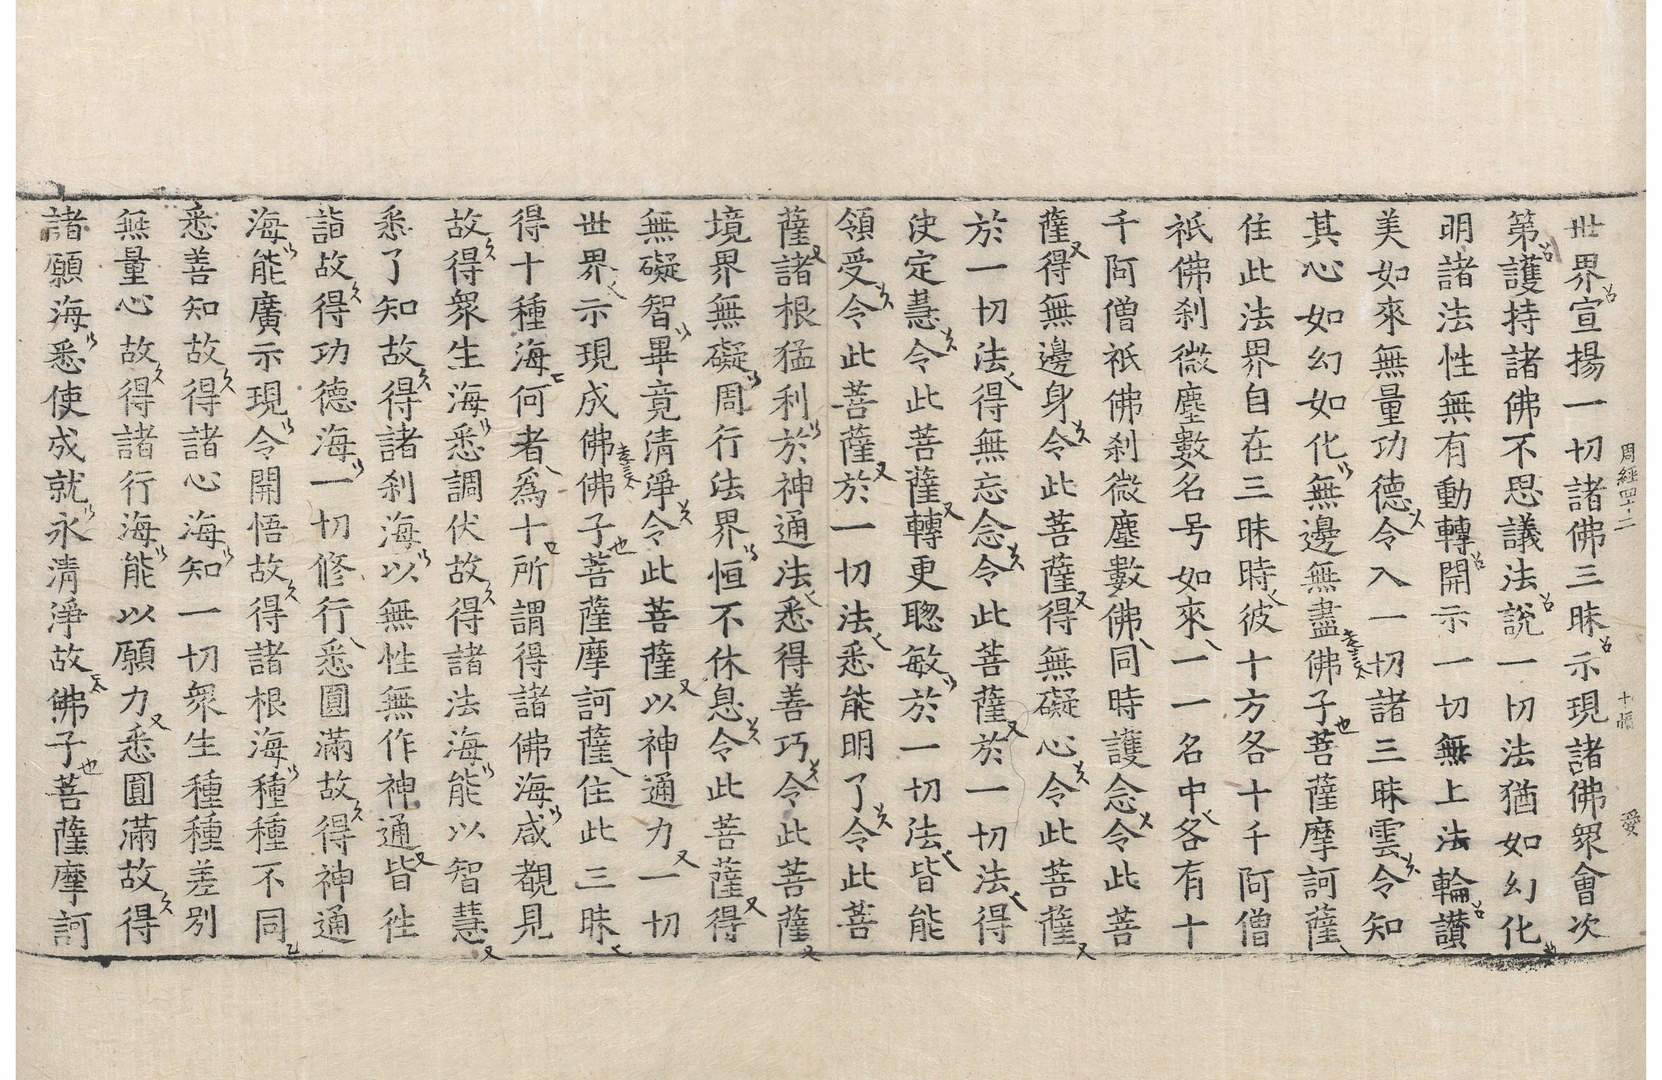 世界宣揚一切諸佛三昧示現諸佛衆會次
第護持諸佛不思議法說一切法猶如幻化
明諸法性無有動轉開示一切無上法輪讃
美如來無量功德令入一切諸三昧雲令知
其心如幻如化無邊無盡佛子菩薩摩訶薩
住此法界自在三昧時彼十方各十千阿僧
祇佛刹微塵數名号如來一一名中各有十
千阿僧祇佛刹微塵數佛同時護念令此菩
薩得無邊身令此菩薩得無礙心令此菩薩
於一切法得無忘念令此菩薩於一切法得
決定慧令此菩薩轉更聡敏於一切法皆能
領受令此菩薩於一切法悉能明了令此菩
薩諸根猛利於神通法悉得善巧令此菩薩
境界無礙周行法界恒不休息令此菩薩得
無礙智畢竟清淨令此菩薩以神通力一切
世界示現成佛佛子菩薩摩訶薩住此三昧
得十種海何者爲十所謂得諸佛海咸覩見
故得衆生海悉調伏故得諸法海能以智慧
悉了知故得諸刹海以無性無作神通皆往
詣故得功德海一切修行悉圓滿故得神通
海能廣示現令開悟故得諸根海種種不同
悉善知故得諸心海知一切衆生種種差别
無量心故得諸行海能以願力悉圓滿故得
諸願海悉使成就永清淨故佛子菩薩摩訶
周經四十二
十幅
愛